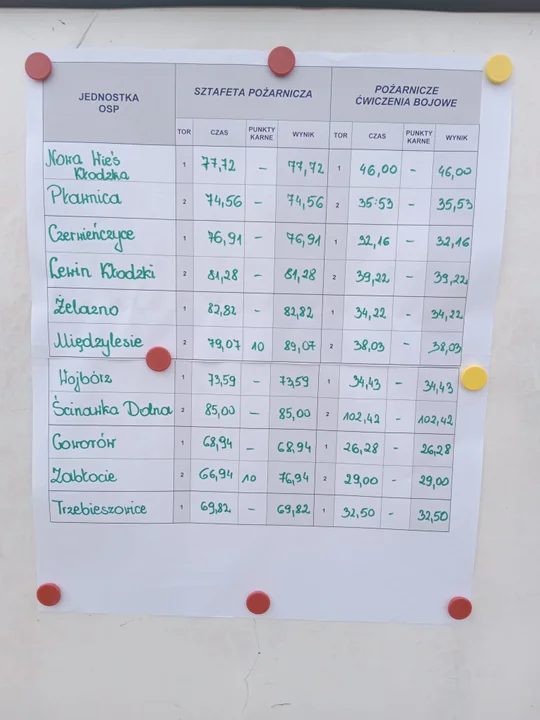 JEDNOSTKA OSP SZTAFETA POŻARNICZA POŻARNICZE ĆWICZENIA BOJOWE
TOR CZAS PUNKTY KARNE WYNIK TOR CZAS PUNKTY KARNE WYNIK
Nowa Wieś Kłodzka 1 77,72 – 77,72 1 46,00 – 46,00
Pławnica 2 74,56 – 74,56 2 35:53 – 35,53
Czerwieńczyce 1 76,91 – 76,91 1 32,16 – 32,16
Lewin Kłodzki 2 81,28 – 81,28 2 39,22 – 39,22
Żelazno 1 82,82 – 82,82 1 34,22 – 34,22
Międzylesie 2 79,07 10 89,07 2 38,03 – 38,03
Wojbórz 1 73,59 – 73,59 1 34,43 – 34,43
Ścinawka Dolna 2 85,00 – 85,00 2 102,42 – 102,42
Gorotów 1 68,94 – 68,94 1 26,28 – 26,28
Zabłocie 2 66,94 10 76,94 2 29,00 – 29,00
Trzebieszowice 1 69,82 – 69,82 1 32,50 – 32,50